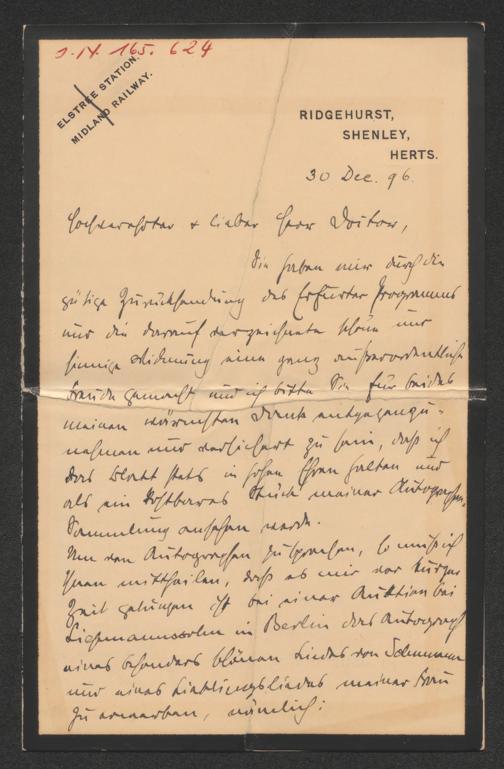 J. IV. 165. 624
ELSTREE STATION.
MIDLAND RAILWAY.
RIDGEHURST,
SHENLEY,
HERTS.
30 Dec. 96.
Hochverehrter & lieber Herr Doctor,
Sie haben mir durch die
gütige Zurücksendung des Erfurter Programms
und die darauf verzeichnete schöne und
sinnige Widmung eine ganz außerordentliche
Freude gemacht und ich bitte Sie für beides
meinen wärmsten Dank entgegenzu-
nehmen und versichert zu sein, daß ich
das Blatt stets in hohen Ehren halten und
als ein kostbares Stück meiner Autographen-
Sammlung ansehen werde.
Um von Autographen zu sprechen, so muß ich
Ihnen mittheilen, daß es mir vor kurzer
Zeit gelungen ist bei einer Auktion bei
Liepmannssohn in Berlin das Autograph
eines besonders schönen Liedes von Schumann
und eines Lieblingsliedes meiner Frau
zu erwerben, nämlich: